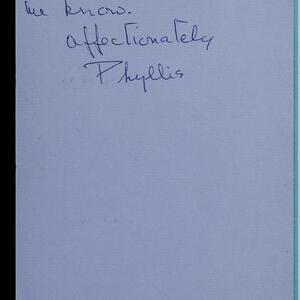 me know.
affectionately
Phyllis